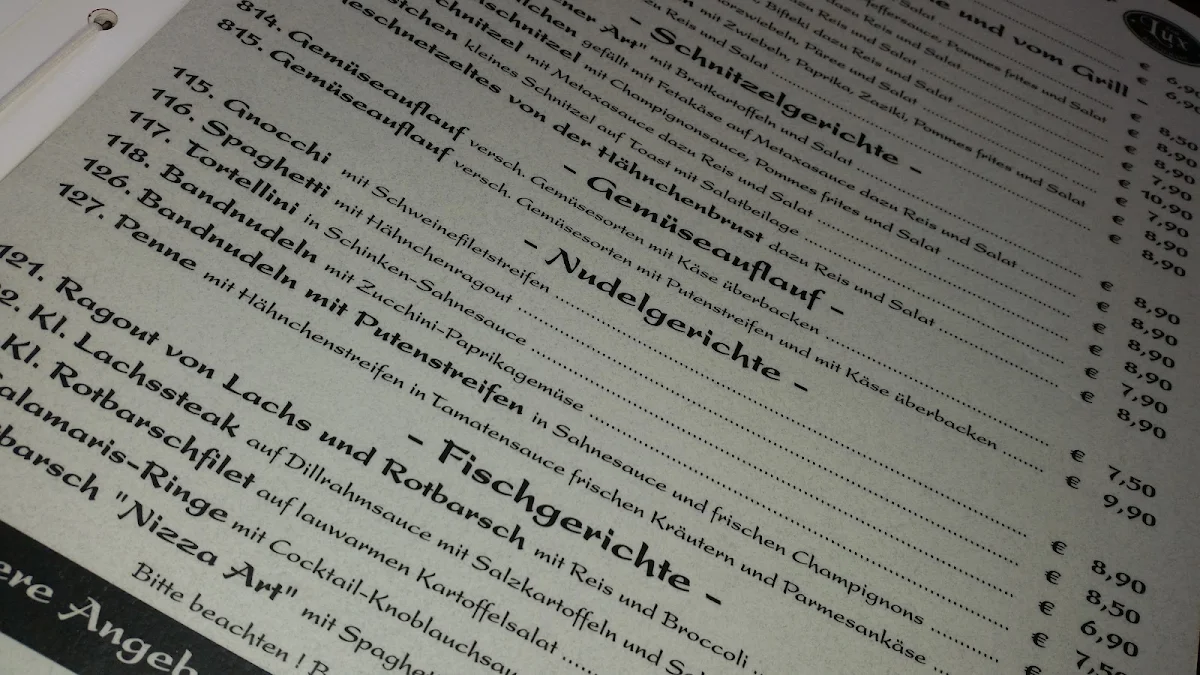 Lux
€ 6,90
€ 6,9
e und vom Grill -
Pfeffersauce, Pommes frites und Salat € 8,50
Bifteki dazu Reis und Salat € 8,90
mit Zwiebeln, Paprika, Zaziki, Pommes frites und Salat € 10,90
zu Reis und Salat € 8,90
- Schnitzelgerichte -
ner Art" mit Bratkartoffeln und Salat € 8,90
gefüllt mit Fetakäse auf Metaxasauce dazu Reis und Salat € 8,90
chnitzel mit Champignonsauce, Pommes frites und Salat € 8,90
chnitzel mit Metaxasauce dazu Reis und Salat € 8,90
stchen kleines Schnitzel auf Toast mit Salatbeilage € 7,90
eschnetzeltes von der Hähnchenbrust dazu Reis und Salat € 8,90
- Gemüseauflauf -
814. Gemüseauflauf versch. Gemüsesorten mit Käse überbacken € 7,50
815. Gemüseauflauf versch. Gemüsesorten mit Putenstreifen und mit Käse überbacken € 9,90
- Nudelgerichte -
115. Gnocchi mit Schweinefiletstreifen € 8,90
116. Spaghetti mit Hähnchenragout € 8,50
117. Tortellini in Schinken-Sahnesauce € 6,90
118. Bandnudeln mit Zucchini-Paprikagemüse € 7,5
126. Bandnudeln mit Putenstreifen in Sahnesauce und frischen Champignons
127. Penne mit Hähnchenstreifen in Tamatensauce frischen Kräutern und Parmesankäse
- Fischgerichte -
121. Ragout von Lachs und Rotbarsch mit Reis und Broccoli
2. Kl. Lachssteak auf Dillrahmsauce mit Salzkartoffeln und Sa
Kl. Rotbarschfilet auf lauwarmen Kartoffelsalat
alamaris-Ringe mit Cocktail-Knoblauchsau
tbarsch "Nizza Art" mit Spaghet
Bitte beachten ! B
ere Angeb